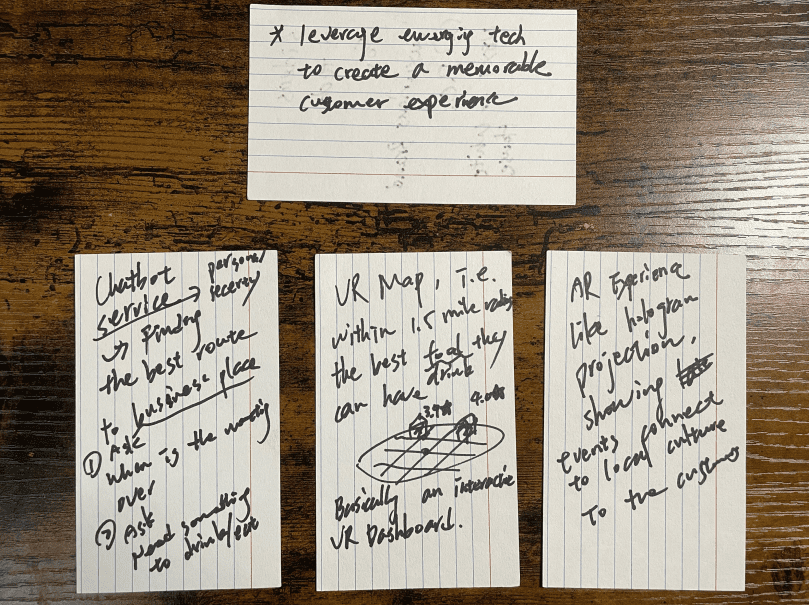 * leverage emergig tech
to create a memorable
customer experience
Chatbot
service → personal
security
↳ Finding
the best route
to business place
① Ask
when is the meeting
over
② Ask
Need something
to drink/eat
VR Map, i.e.
within 1.5 mile radius
the best food they
drink
can have
3.9☆ 4.0☆
Basically an interactive
VR Dashboard.
AR Experience
like hologram
projection,
showing
events connect
to local culture
to the customers